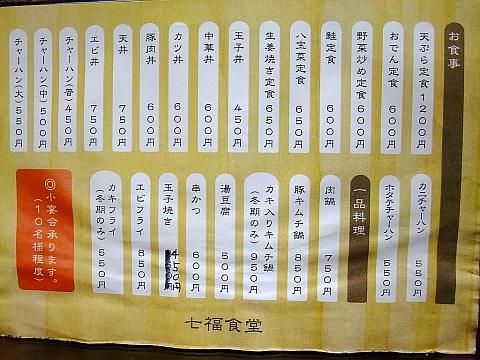 お食事
天ぷら定食 1200円
おでん定食 600円
野菜炒め定食 600円
鮭定食 600円
八宝菜定食 650円
生姜焼き定食 650円
玉子丼 450円
中華丼 600円
カツ丼 600円
豚肉丼 600円
天丼 750円
エビ丼 750円
チャーハン(普) 450円
チャーハン(中) 500円
チャーハン(大) 550円
カニチャーハン 550円
ホタテチャーハン 550円
一品料理
肉鍋 750円
豚キムチ鍋 850円
カキ入りキムチ鍋
(冬期のみ) 950円
湯豆腐 500円
串かつ 600円
玉子焼き 450円
エビフライ 850円
カキフライ
(冬期のみ) 550円
◎小宴会承ります。
(10名様程度)
七福食堂